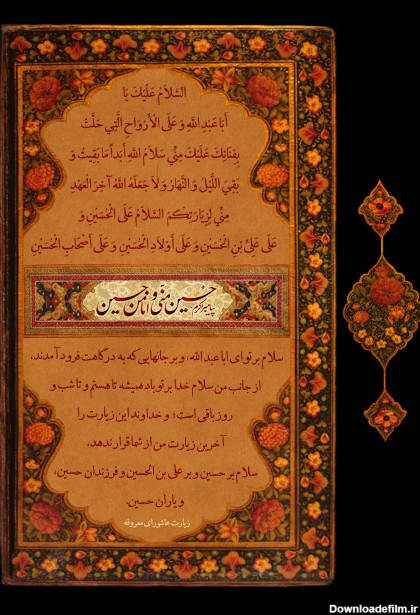 السَّلامُ عَلَيْكَ يَا
أَبَا عَبْدِ اللَّهِ وَ عَلَى الْأَرْوَاحِ الَّتِي حَلَّتْ
بِفِنَائِكَ عَلَيْكَ مِنِّي سَلامُ اللَّهِ أَبَداً مَا بَقِيتُ وَ
بَقِيَ اللَّيْلُ وَ النَّهَارُ وَ لا جَعَلَهُ اللَّهُ آخِرَ الْعَهْدِ
مِنِّي لِزِيَارَتِكُمْ السَّلامُ عَلَى الْحُسَيْنِ وَ
عَلَى عَلِيِّ بْنِ الْحُسَيْنِ وَ عَلَى أَوْلادِ الْحُسَيْنِ وَ عَلَى أَصْحَابِ الْحُسَيْنِ
پیامبر اکرم حسین منی و انا من حسین
سلام بر تو ای ابا عبدالله، و بر جانهایی که به درگاهت فرود آمدند،
از جانب من سلام خدا بر تو باد همیشه تا هستم و تا شب و
روز باقی است؛ و خداوند این زیارت را
آخرین زیارت من از شما قرار ندهد،
سلام بر حسین و بر علی بن الحسین و فرزندان حسین،
و یاران حسین.
زیارت عاشورای معروفه
Downloadefilm.ir